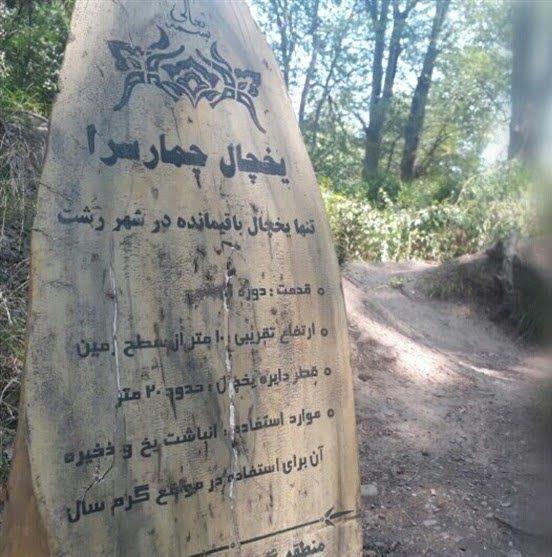 تعالی
یخچال چمارسرا
تنها یخچال باقیمانده در شهر رشت
قدمت : دوره
ارتفاع تقریبی : ۱۰ متر از سطح زمین
قطر دایره یخچال : حدود ۲۰ متر
موارد استفاده : انباشت یخ و ذخیره
آن برای استفاده در مواقع گرم سال
منطقه